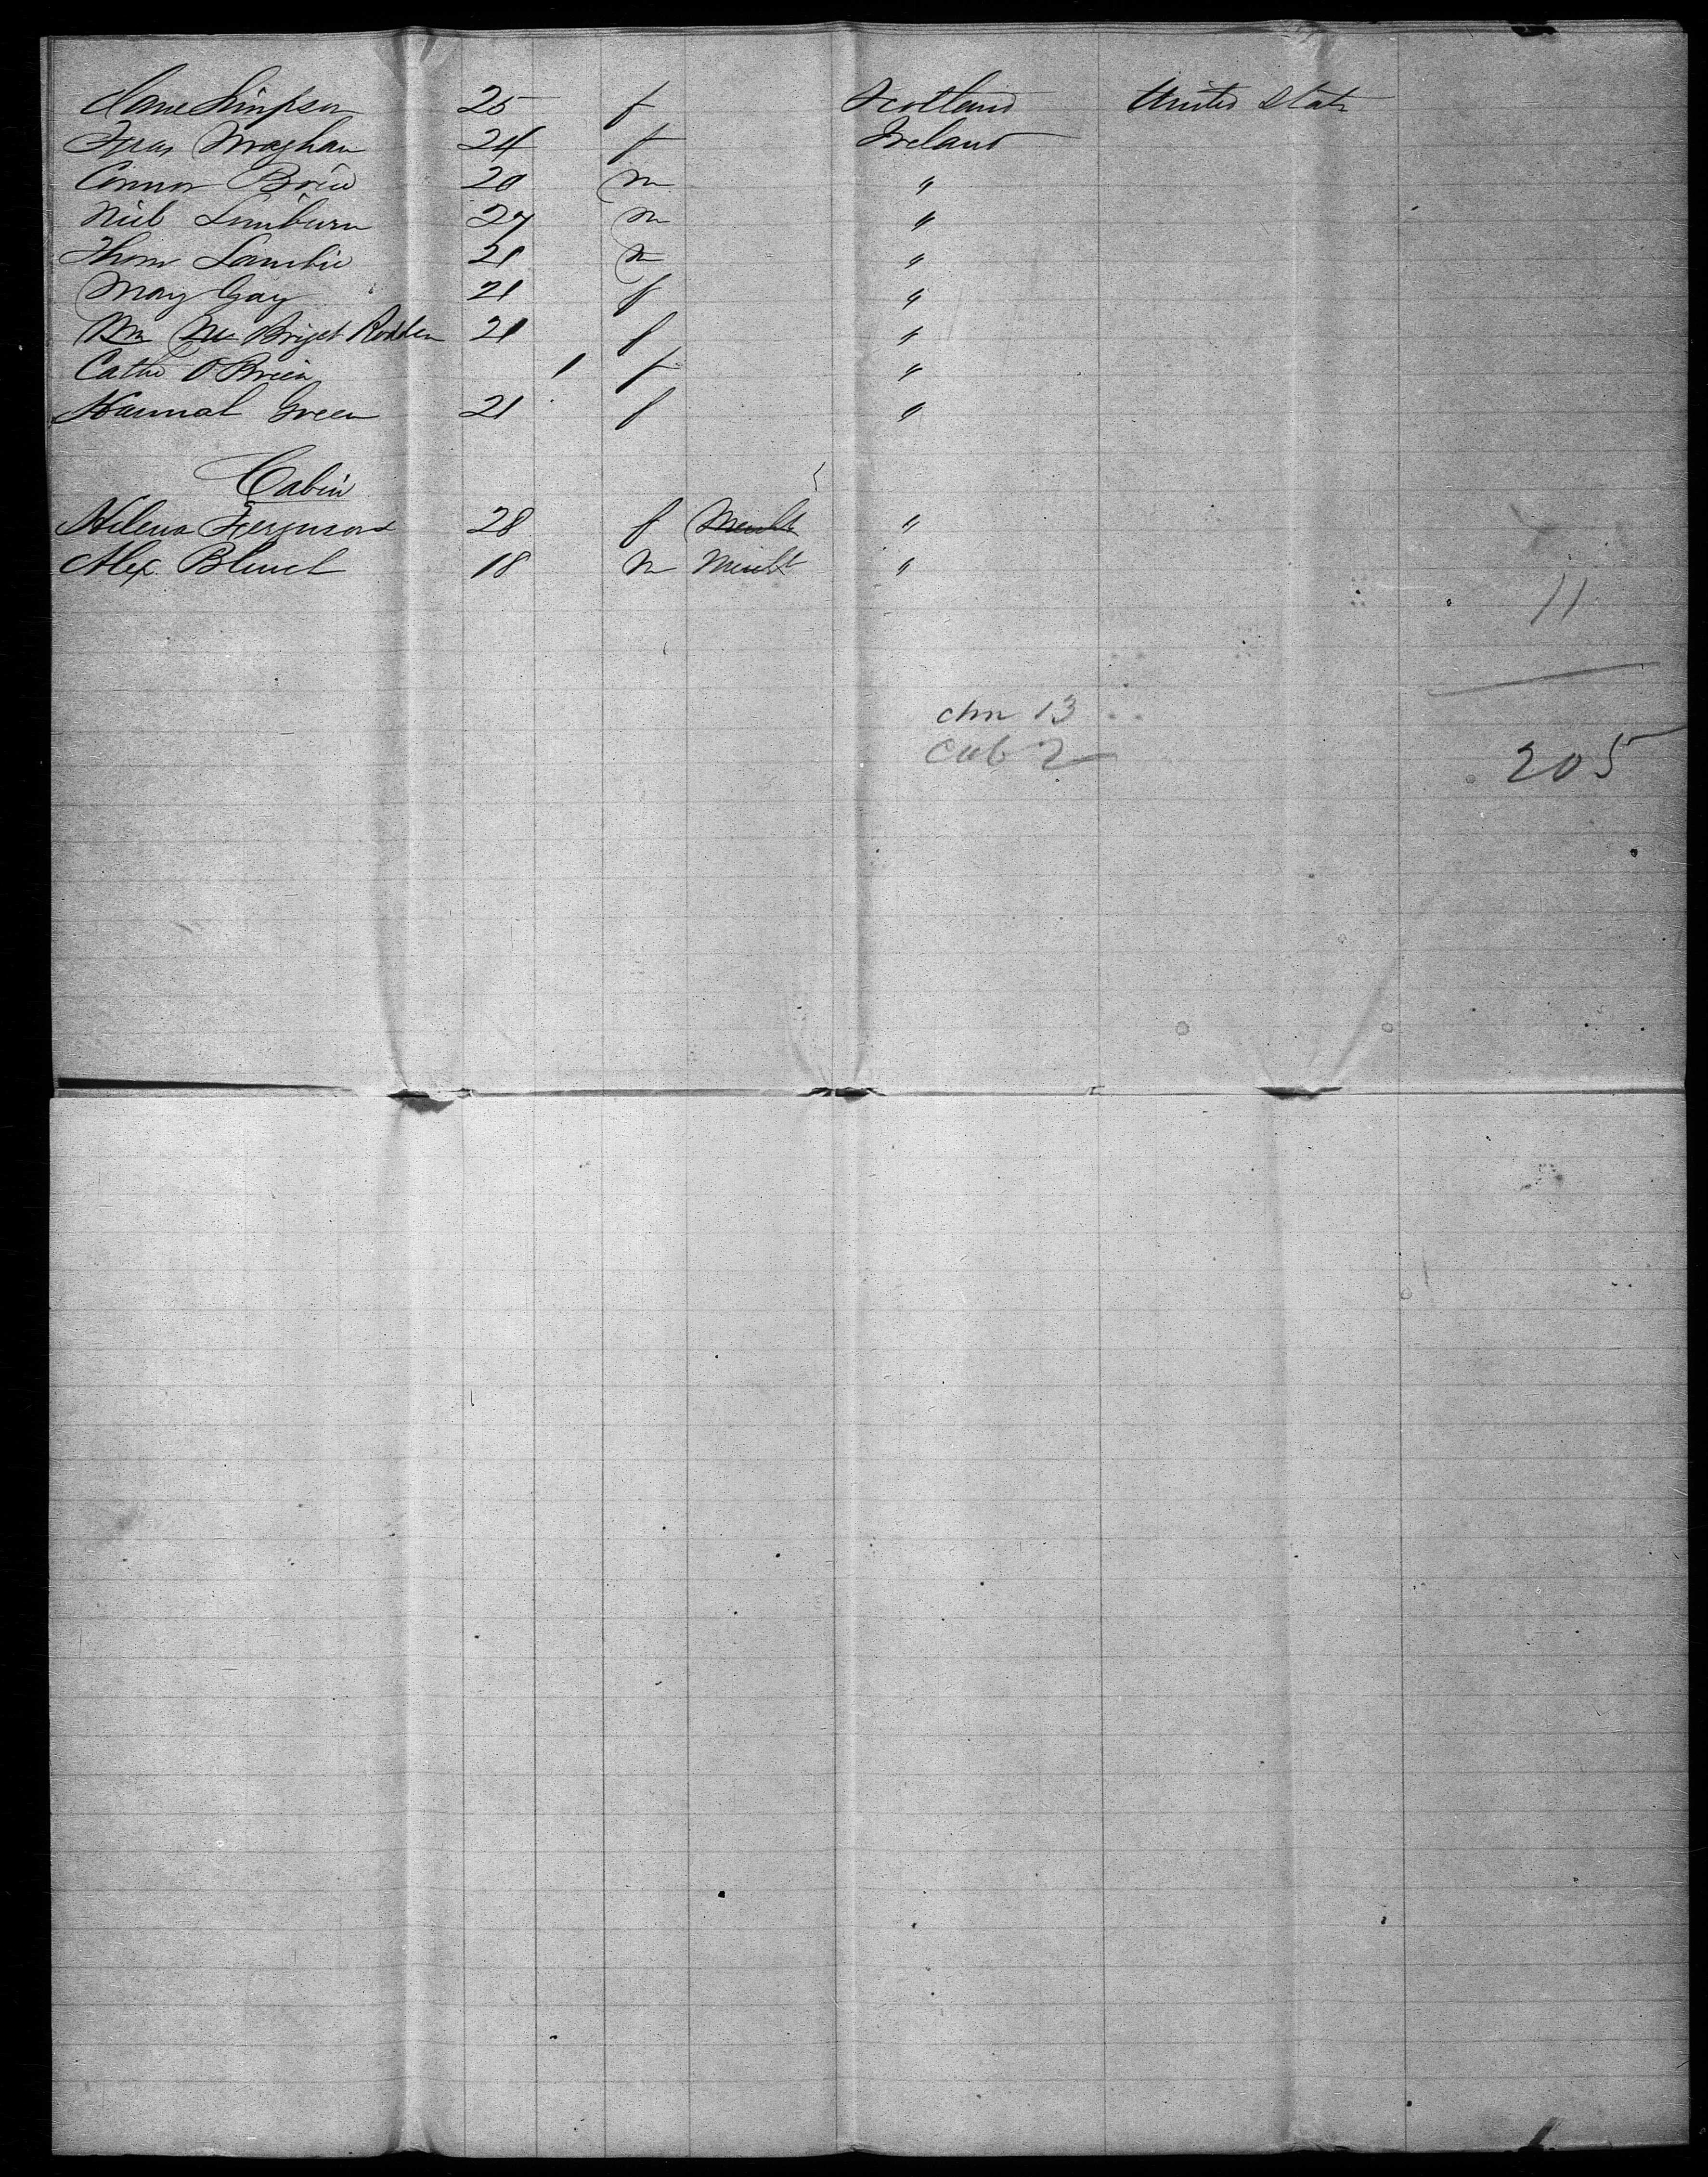 Jane Simpson 25 f Scotland United State
Fras Maghan 24 f Ireland
Connor Brien 20 m "
Neil Limburn 27 m "
Thom Lambie 21 m "
May Gay 21 f "
Briget Rodden 21 f "
Cathe O'Brien 1 f "
Hannah Green 21 f "
Cabin
Helena Ferguson 28 f "
Alex. 18 m Mercht "
11
chn 13
cab 2
205